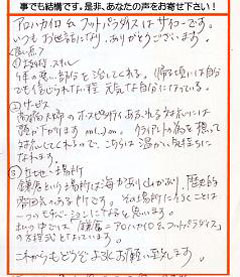 事でも結構です。是非、あなたの声をお寄せ下さい！
アロハカイロ&フットパラダイスはサイコーです。
いつもお世話になり、ありがとうございます。
①技術、スキル
体の悪い部分を治してくれる。帰る頃には自分
でも信じられない程、元気な自分になっている。
②サービス
高橋夫婦のホスピタリティあふれる
頭が下がりますm(_ _)m。クライアントの為を想って
対応してくれるので、こちらは温かい気持ちに
なれます。
③立地・場所
鎌倉という場所は海があり山があり、歴史的
その場所に行くことは
一つの
私の中では「鎌倉=アロハカイロ&フットパラダイス」
の方程式となっています。
これからもどうぞよろしくお願い致します。